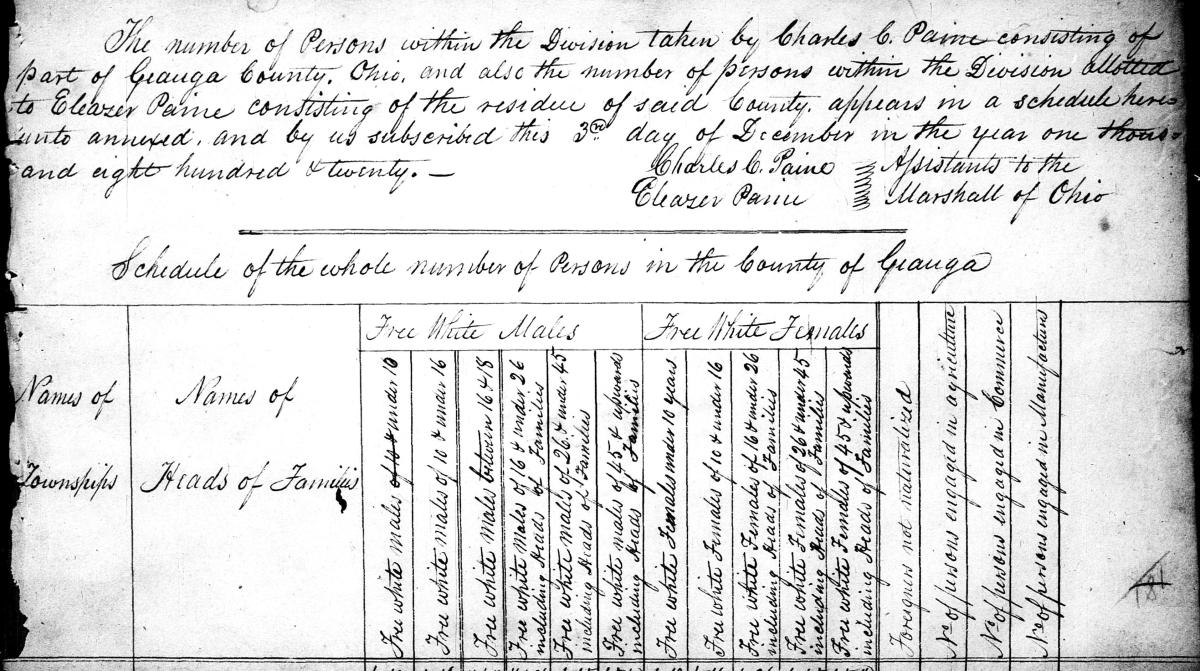 The number of Persons within the Division taken by Charles C. Paine consisting of
part of Geauga County, Ohio, and also the number of persons within the Division allotted
to Eleazer Paine consisting of the residue of said County, appears in a schedule here-
unto annexed, and by us subscribed this 3rd day of December in the year one thous-
and eight hundred & twenty. —
Charles C. Paine
Eleazer Paine
Assistants to the
Marshall of Ohio
Schedule of the whole number of Persons in the County of Geauga
Names of
Townships
Names of
Heads of Families
Free White Males
Free white males under 10
Free white males of 10 & under 16
Free white males between 16 & 18
Free white Males of 16 & under 26
including Heads of Families
Free white males of 26 & under 45
including Heads of Families
Free white males of 45 & upwards
including Heads of Families
Free White Females
Free white Females under 10 years
Free white Females of 10 & under 16
Free white Females of 16 & under 26
including Heads of Families
Free white Females of 26 & under 45
including Head of Families
Free white Females of 45 & upwards
including Heads of Families
Foreigners not naturalized
No of persons engaged in agriculture
No of persons engaged in Commerce
No of persons engaged in Manufactures